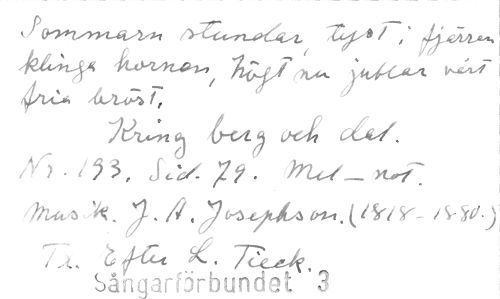 Sommarn stundar, tyst i fjärran
klinga hornen, högt nu jublar vårt
fria bröst.
Kring berg och dal.
Nr. 193. Sid. 79. Mel-not.
Musik. J. A. Josephson. (1818-1880.)
Tx. Efter L. Tieck.
Sångarförbundet 3